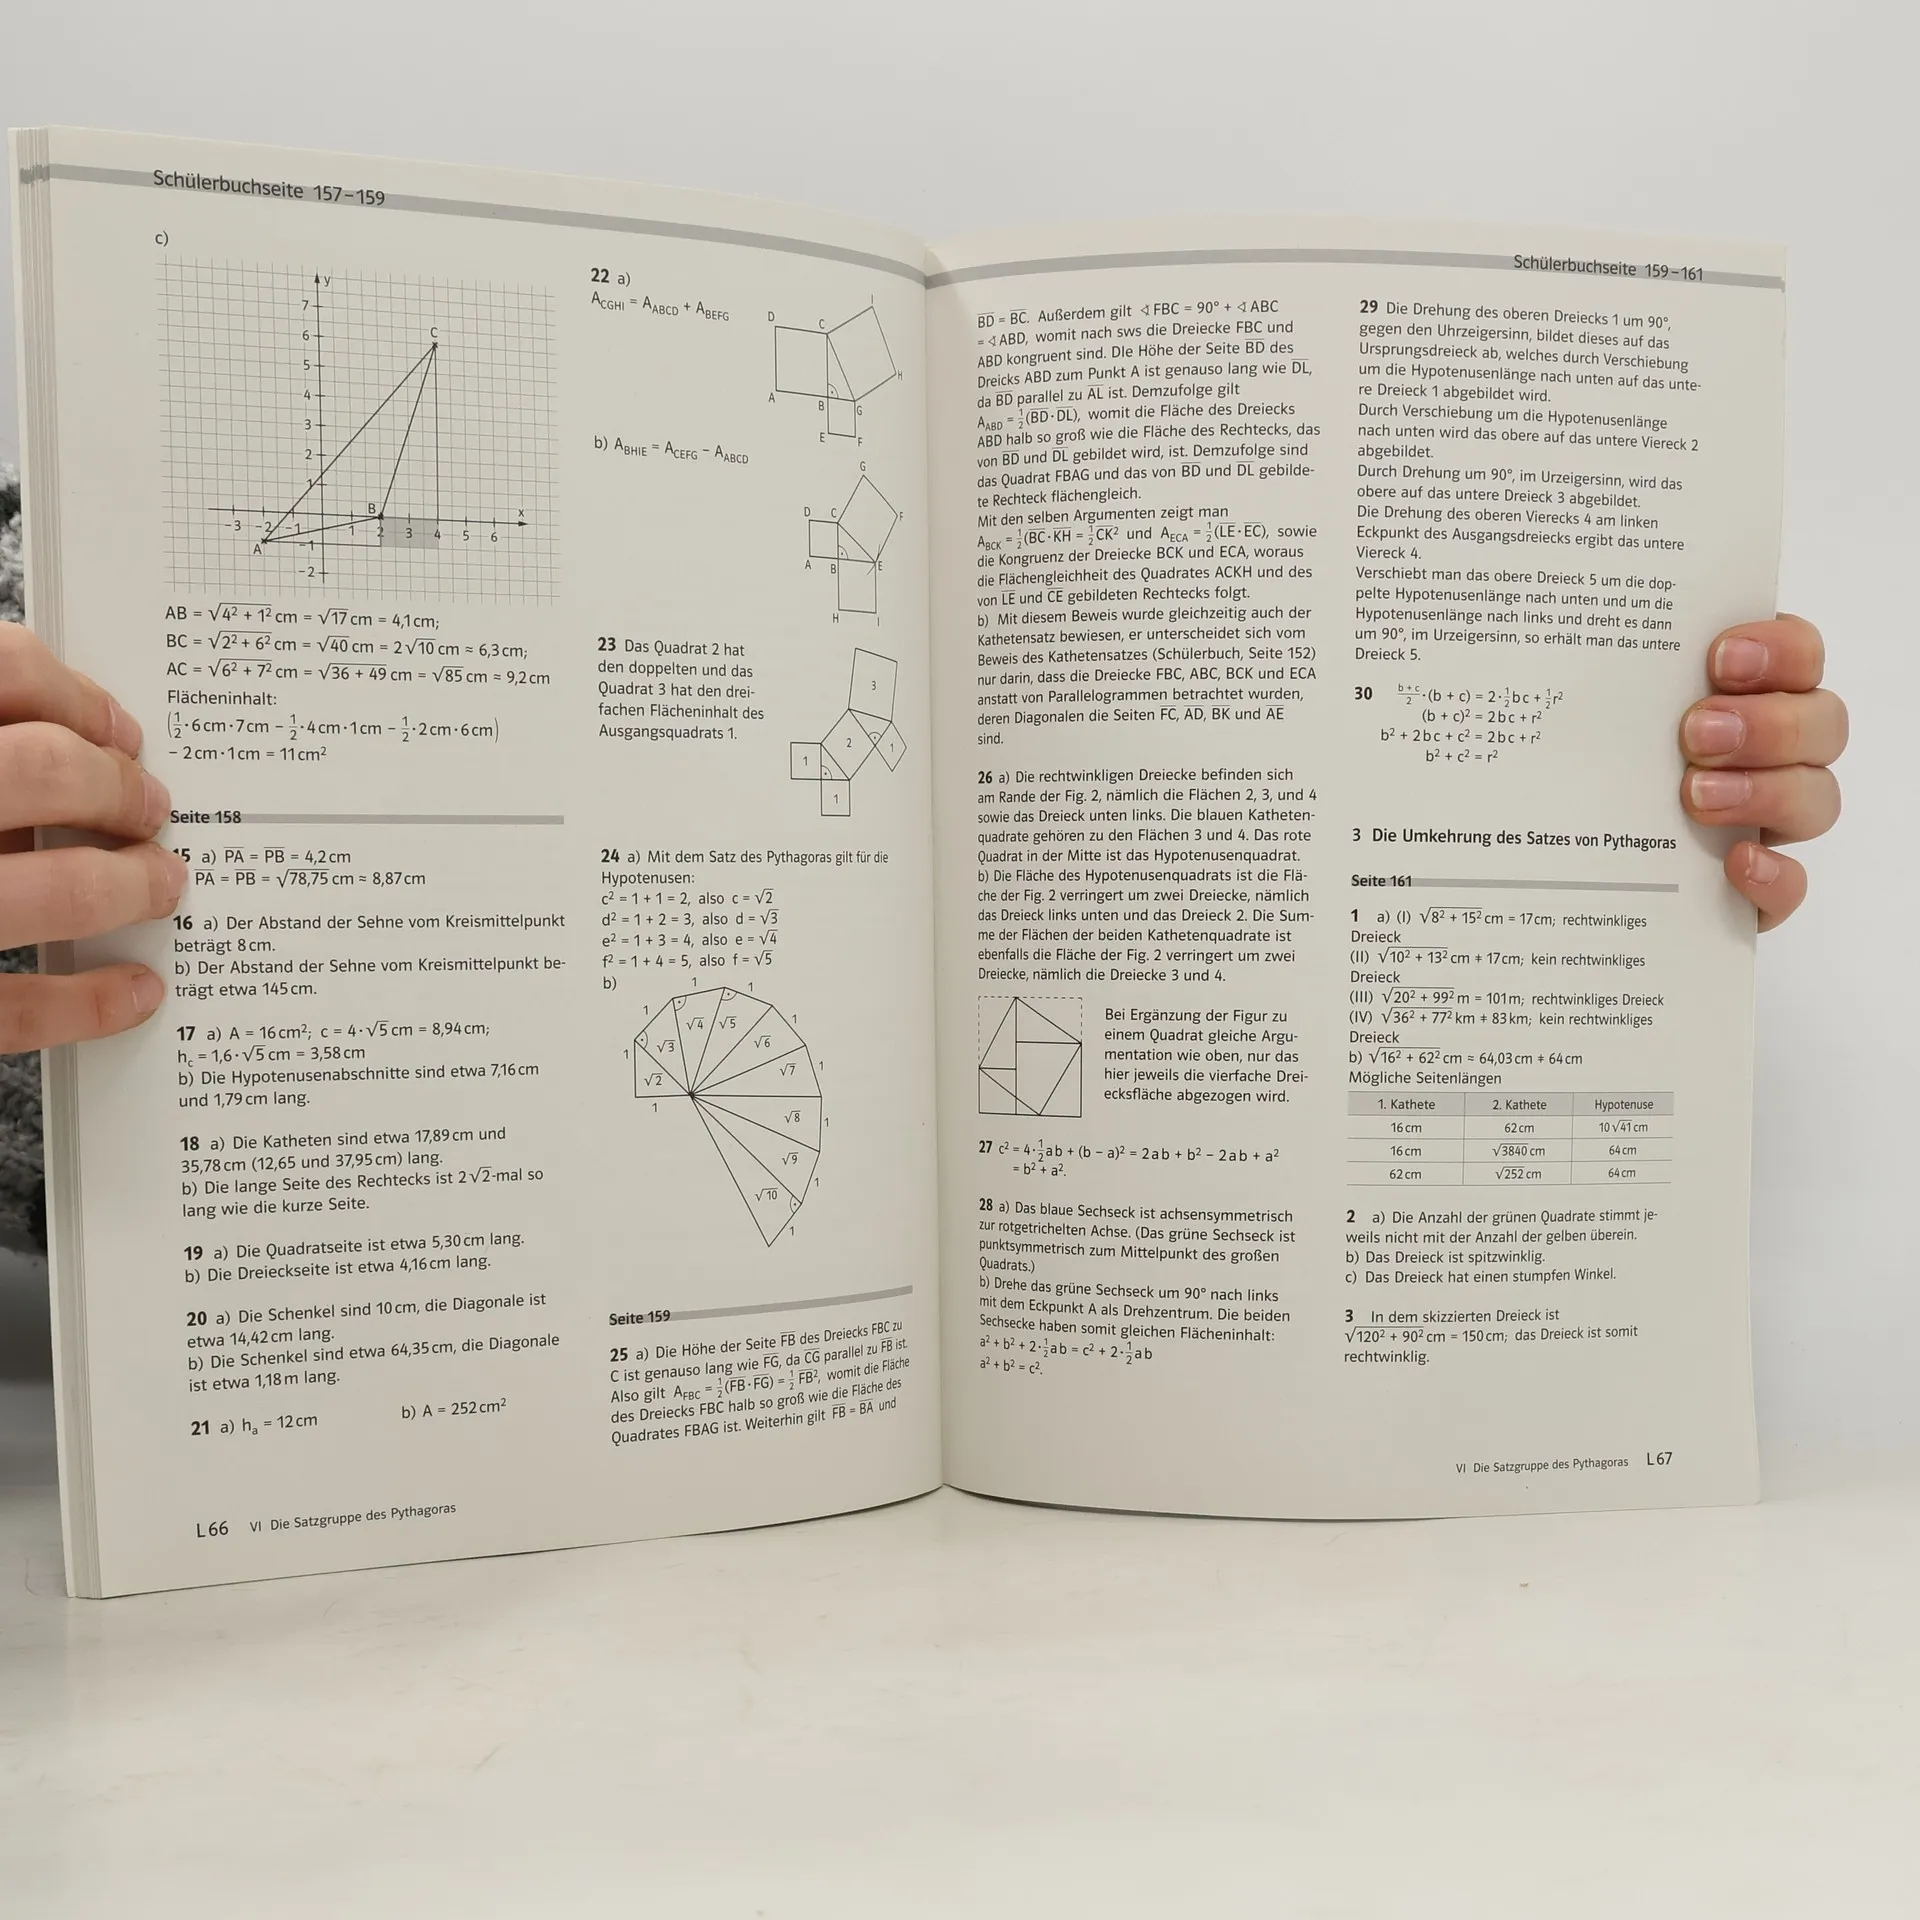 Schülerbuchseite 157–159
c)
y
7
6
5
4
3
2
1
C
B
x
-3 -2 -1 1 2 3 4 5 6
A
-1
-2
AB = √(4² + 1²) cm = √17 cm = 4,1 cm;
BC = √(2² + 6²) cm = √40 cm = 2√10 cm ≈ 6,3 cm;
AC = √(6² + 7²) cm = √(36 + 49) cm = √85 cm ≈ 9,2 cm
Flächeninhalt:
(1/2 · 6 cm · 7 cm − 1/2 · 4 cm · 1 cm − 1/2 · 2 cm · 6 cm)
− 2 cm · 1 cm = 11 cm²
Seite 158
15 a) PA = PB = 4,2 cm
PA = PB = √78,75 cm ≈ 8,87 cm
16 a) Der Abstand der Sehne vom Kreismittelpunkt
beträgt 8 cm.
b) Der Abstand der Sehne vom Kreismittelpunkt be-
trägt etwa 145 cm.
17 a) A = 16 cm²; c = 4 · √5 cm = 8,94 cm;
h_c = 1,6 · √5 cm = 3,58 cm
b) Die Hypotenusenabschnitte sind etwa 7,16 cm
und 1,79 cm lang.
18 a) Die Katheten sind etwa 17,89 cm und
35,78 cm (12,65 und 37,95 cm) lang.
b) Die lange Seite des Rechtecks ist 2√2-mal so
lang wie die kurze Seite.
19 a) Die Quadratseite ist etwa 5,30 cm lang.
b) Die Dreieckseite ist etwa 4,16 cm lang.
20 a) Die Schenkel sind 10 cm, die Diagonale ist
etwa 14,42 cm lang.
b) Die Schenkel sind etwa 64,35 cm, die Diagonale
ist etwa 1,18 m lang.
21 a) h_a = 12 cm b) A = 252 cm²
L 66 VI Die Satzgruppe des Pythagoras
22 a)
A_CGHI = A_ABCD + A_BEFG
D C I
H
A B G
E F
b) A_BHIE = A_CEFG − A_ABCD
G
D C F
A B E
H I
23 Das Quadrat 2 hat
den doppelten und das
Quadrat 3 hat den drei-
fachen Flächeninhalt des
Ausgangsquadrats 1.
3
2 1
1
1
24 a) Mit dem Satz des Pythagoras gilt für die
Hypotenusen:
c² = 1 + 1 = 2, also c = √2
d² = 1 + 2 = 3, also d = √3
e² = 1 + 3 = 4, also e = √4
f² = 1 + 4 = 5, also f = √5
b)
1 1
1 1
√4 √5
1 √3 √6
√2 √7 1
1 √8 1
√9
√10 1
1
Seite 159
25 a) Die Höhe der Seite FB des Dreiecks FBC zu
C ist genauso lang wie FG, da CG parallel zu FB ist.
Also gilt A_FBC = 1/2 (FB · FG) = 1/2 FB², womit die Fläche
des Dreiecks FBC halb so groß wie die Fläche des
Quadrates FBAG ist. Weiterhin gilt FB = BA und
Schülerbuchseite 159–161
BD = BC. Außerdem gilt ∢ FBC = 90° + ∢ ABC
= ∢ ABD, womit nach sws die Dreiecke FBC und
ABD kongruent sind. DIe Höhe der Seite BD des
Dreicks ABD zum Punkt A ist genauso lang wie DL,
da BD parallel zu AL ist. Demzufolge gilt
A_ABD = 1/2 (BD · DL), womit die Fläche des Dreiecks
ABD halb so groß wie die Fläche des Rechtecks, das
von BD und DL gebildet wird, ist. Demzufolge sind
das Quadrat FBAG und das von BD und DL gebilde-
te Rechteck flächengleich.
Mit den selben Argumenten zeigt man
A_BCK = 1/2 (BC · KH = 1/2 CK² und A_ECA = 1/2 (LE · EC), sowie
die Kongruenz der Dreiecke BCK und ECA, woraus
die Flächengleichheit des Quadrates ACKH und des
von LE und CE gebildeten Rechtecks folgt.
b) Mit diesem Beweis wurde gleichzeitig auch der
Kathetensatz bewiesen, er unterscheidet sich vom
Beweis des Kathetensatzes (Schülerbuch, Seite 152)
nur darin, dass die Dreiecke FBC, ABC, BCK und ECA
anstatt von Parallelogrammen betrachtet wurden,
deren Diagonalen die Seiten FC, AD, BK und AE
sind.
26 a) Die rechtwinkligen Dreiecke befinden sich
am Rande der Fig. 2, nämlich die Flächen 2, 3, und 4
sowie das Dreieck unten links. Die blauen Katheten-
quadrate gehören zu den Flächen 3 und 4. Das rote
Quadrat in der Mitte ist das Hypotenusenquadrat.
b) Die Fläche des Hypotenusenquadrats ist die Flä-
che der Fig. 2 verringert um zwei Dreiecke, nämlich
das Dreieck links unten und das Dreieck 2. Die Sum-
me der Flächen der beiden Kathetenquadrate ist
ebenfalls die Fläche der Fig. 2 verringert um zwei
Dreiecke, nämlich die Dreiecke 3 und 4.
Bei Ergänzung der Figur zu
einem Quadrat gleiche Argu-
mentation wie oben, nur das
hier jeweils die vierfache Drei-
ecksfläche abgezogen wird.
27 c² = 4 · 1/2 ab + (b − a)² = 2ab + b² − 2ab + a²
= b² + a².
28 a) Das blaue Sechseck ist achsensymmetrisch
zur rotgetrichelten Achse. (Das grüne Sechseck ist
punktsymmetrisch zum Mittelpunkt des großen
Quadrats.)
b) Drehe das grüne Sechseck um 90° nach links
mit dem Eckpunkt A als Drehzentrum. Die beiden
Sechsecke haben somit gleichen Flächeninhalt:
a² + b² + 2 · 1/2 ab = c² + 2 · 1/2 ab
a² + b² = c².
29 Die Drehung des oberen Dreiecks 1 um 90°,
gegen den Uhrzeigersinn, bildet dieses auf das
Ursprungsdreieck ab, welches durch Verschiebung
um die Hypotenusenlänge nach unten auf das unte-
re Dreieck 1 abgebildet wird.
Durch Verschiebung um die Hypotenusenlänge
nach unten wird das obere auf das untere Viereck 2
abgebildet.
Durch Drehung um 90°, im Urzeigersinn, wird das
obere auf das untere Dreieck 3 abgebildet.
Die Drehung des oberen Vierecks 4 am linken
Eckpunkt des Ausgangsdreiecks ergibt das untere
Viereck 4.
Verschiebt man das obere Dreieck 5 um die dop-
pelte Hypotenusenlänge nach unten und um die
Hypotenusenlänge nach links und dreht es dann
um 90°, im Urzeigersinn, so erhält man das untere
Dreieck 5.
30 (b + c)/2 · (b + c) = 2 · 1/2 bc + 1/2 r²
(b + c)² = 2bc + r²
b² + 2bc + c² = 2bc + r²
b² + c² = r²
3 Die Umkehrung des Satzes von Pythagoras
Seite 161
1 a) (I) √(8² + 15²) cm = 17 cm; rechtwinkliges
Dreieck
(II) √(10² + 13²) cm ≠ 17 cm; kein rechtwinkliges
Dreieck
(III) √(20² + 99²) m = 101 m; rechtwinkliges Dreieck
(IV) √(36² + 77²) km ≠ 83 km; kein rechtwinkliges
Dreieck
b) √(16² + 62²) cm ≈ 64,03 cm ≠ 64 cm
Mögliche Seitenlängen
1. Kathete 2. Kathete Hypotenuse
16 cm 62 cm 10 √41 cm
16 cm √3840 cm 64 cm
62 cm √252 cm 64 cm
2 a) Die Anzahl der grünen Quadrate stimmt je-
weils nicht mit der Anzahl der gelben überein.
b) Das Dreieck ist spitzwinklig.
c) Das Dreieck hat einen stumpfen Winkel.
3 In dem skizzierten Dreieck ist
√(120² + 90²) cm = 150 cm; das Dreieck ist somit
rechtwinklig.
VI Die Satzgruppe des Pythagoras L 67